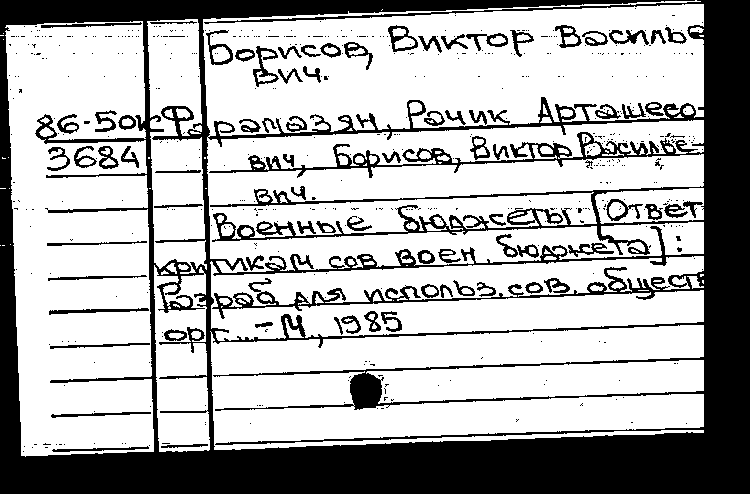 Борисов, Виктор Василье
вич.
86-50к Фарамазян, Рачик Арташесо-
3684 вич, Борисов, Виктор Василье-
вич.
Военные бюджеты: [Ответ
критикам сов. воен. бюджета]:
Разраб для использ. сов. обществ
орг... – М., 1985